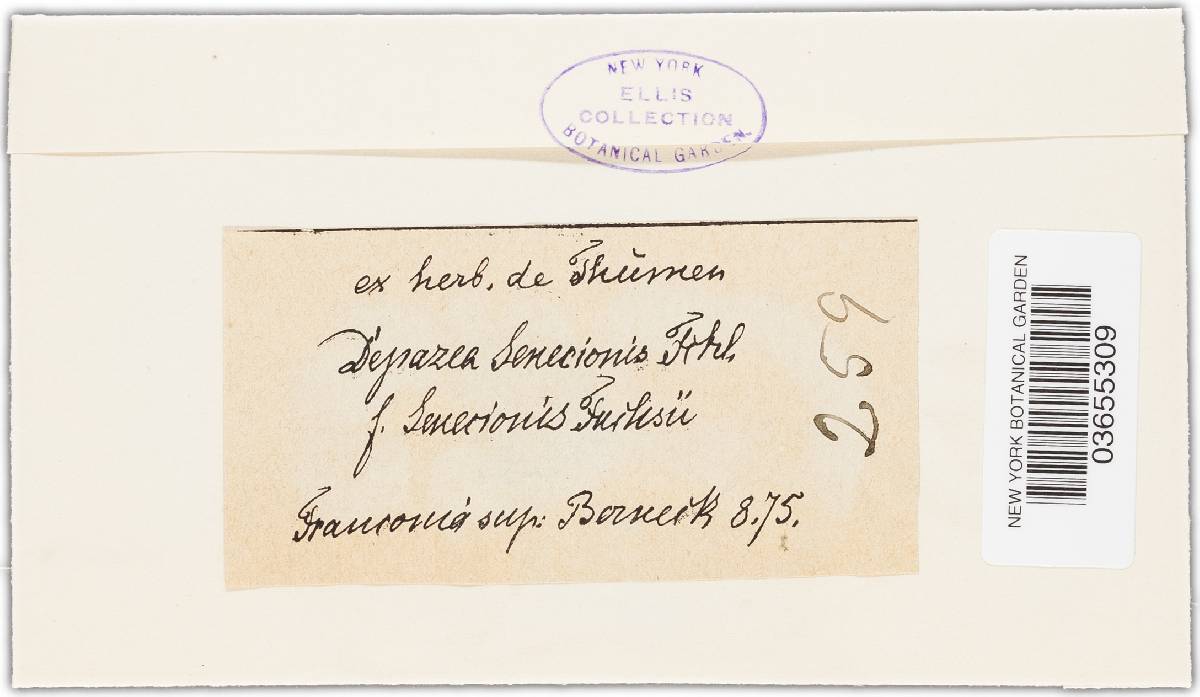 NEW YORK
ELLIS
COLLECTION
BOTANICAL GARDEN
ex herb. de Thümen
Depazea Senecionis Fckl.
f. Senecionis Fuchsii
Franconia sup: Berneck 8.75.
259
NEW YORK BOTANICAL GARDEN
03655309